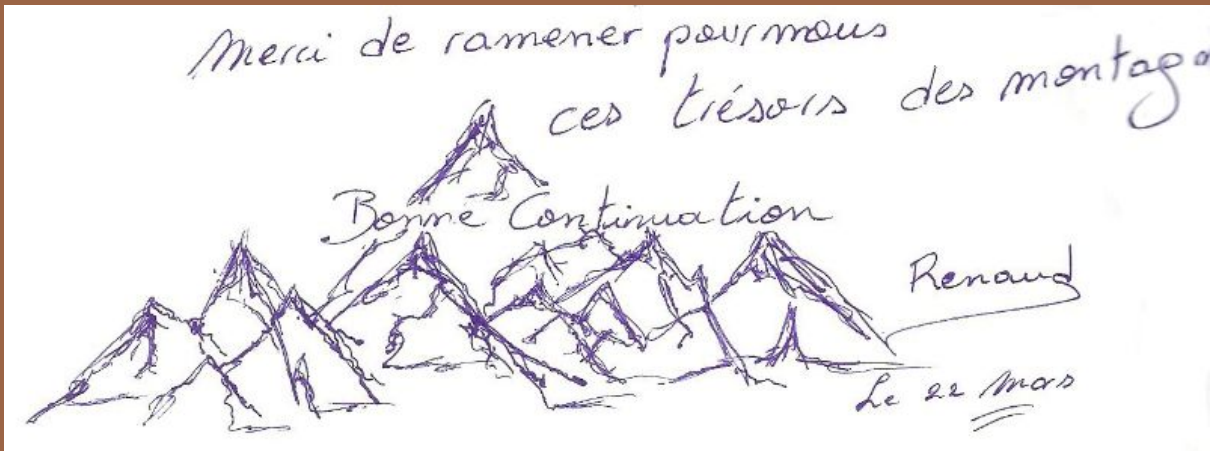 Merci de ramener pour nous
ces trésors des montag
Bonne Continuation
Renaud
Le 22 Mars